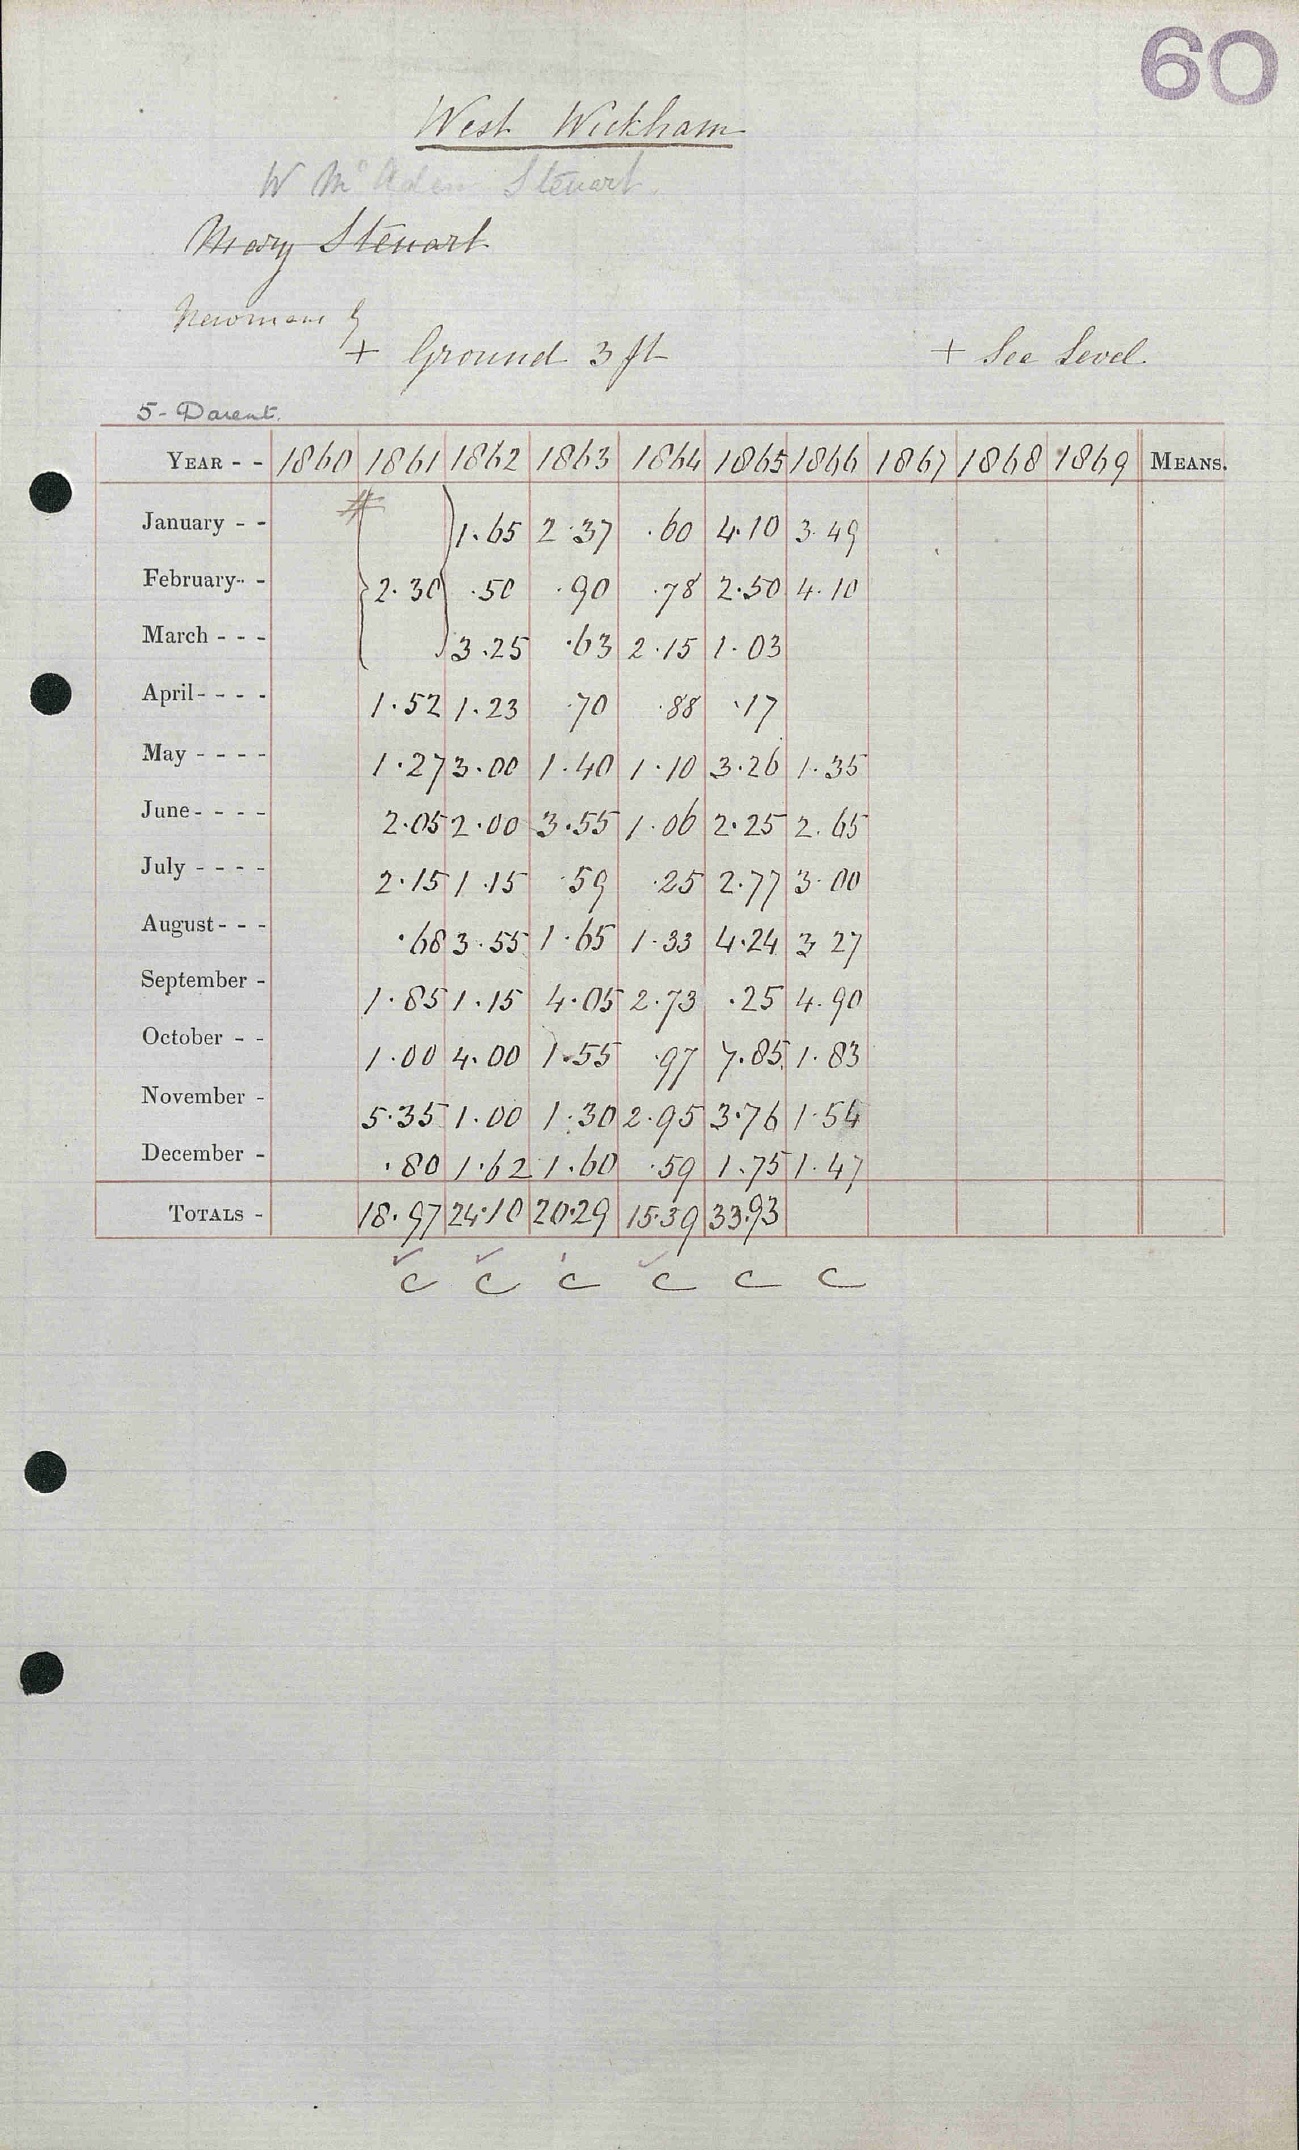 60
West Wickham
W Mc Adam Steuart.
Mary Steuart
Newmans G
+ Ground 3 ft + See Level.
5 - Darent.
YEAR - - 1860 1861 1862 1863 1864 1865 1866 1867 1868 1869 MEANS.
January - - # 1.65 2.37 .60 4.10 3.49
February - - 2.30 .50 .90 .78 2.50 4.10
March - - - 3.25 .63 2.15 1.03
April - - - - 1.52 1.23 .70 .88 .17
May - - - - 1.27 3.00 1.40 1.10 3.26 1.35
June - - - - 2.05 2.00 3.55 1.06 2.25 2.65
July - - - - 2.15 1.15 .59 .25 2.77 3.00
August - - - .68 3.55 1.65 1.33 4.24 3 27
September - 1.85 1.15 4.05 2.73 .25 4.90
October - - 1.00 4.00 1.55 .97 7.85 1.83
November - 5.35 1.00 1.30 2.95 3.76 1.54
December - .80 1.62 1.60 .59 1.75 1.47
TOTALS - 18.97 24.10 20.29 15.39 33.93
c c c c c c